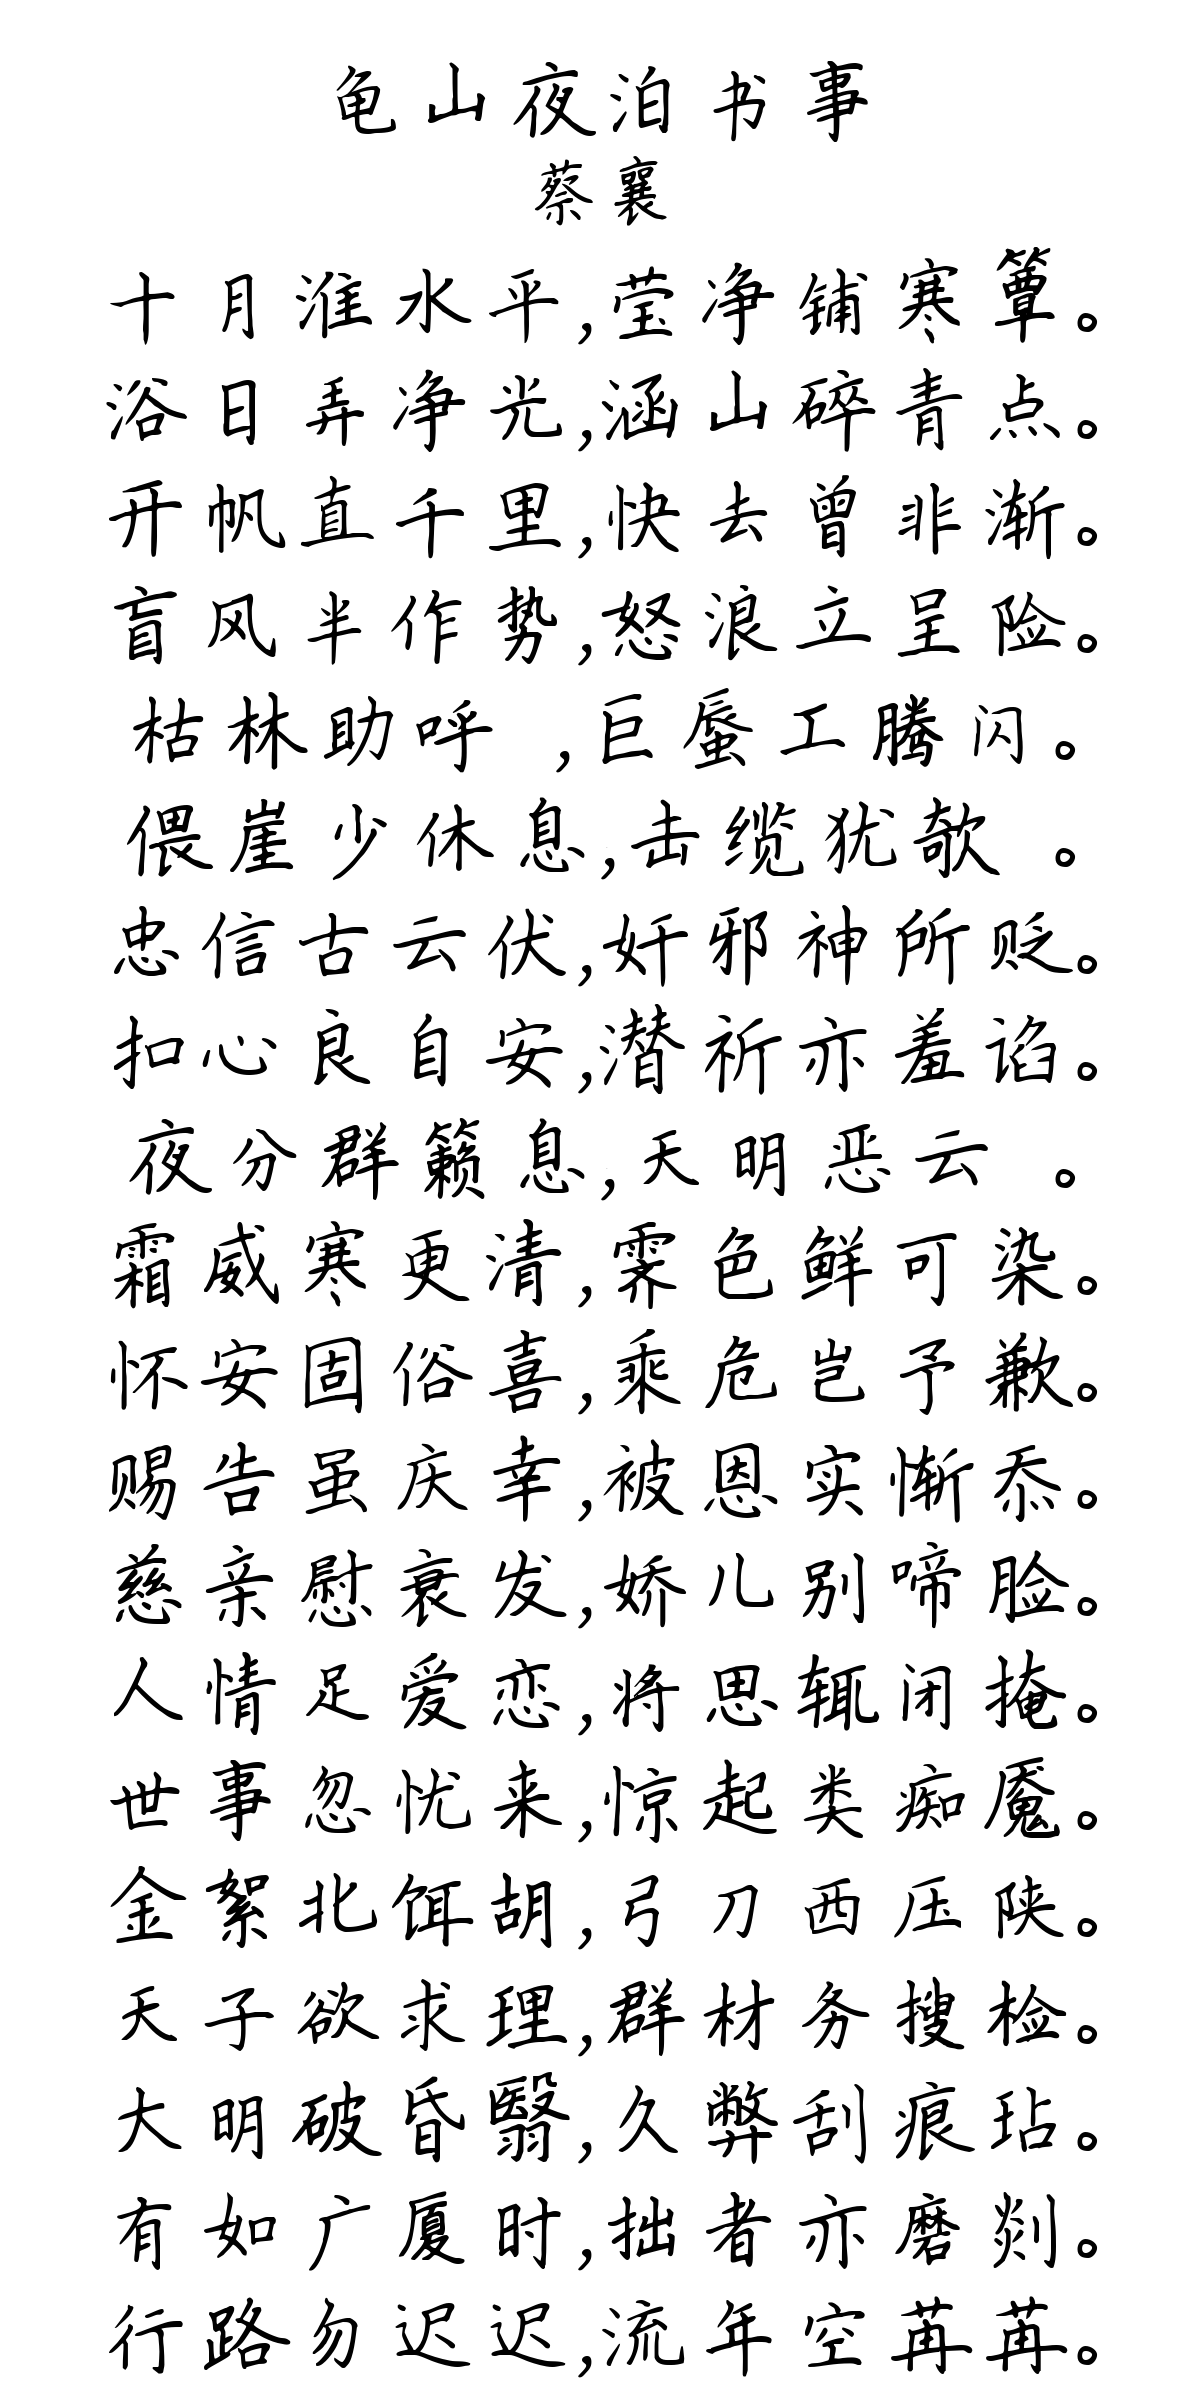 龟山夜泊书事
蔡襄
十月淮水平,莹净铺寒簟。
浴日弄净光,涵山碎青点。
开帆直千里,快去曾非渐。
盲风半作势,怒浪立呈险。
枯林助呼 ,巨蜃工腾闪。
偎崖少休息,击缆犹欹 。
忠信古云伏,奸邪神所贬。
扣心良自安,潜祈亦羞谄。
夜分群籁息,天明恶云 。
霜威寒更清,霁色鲜可染。
怀安固俗喜,乘危岂予歉。
赐告虽庆幸,被恩实惭忝。
慈亲慰衰发,娇儿别啼脸。
人情足爱恋,将思辄闭掩。
世事忽忧来,惊起类痴魇。
金絮北饵胡,弓刀西压陕。
天子欲求理,群材务搜检。
大明破昏翳,久弊刮痕玷。
有如广厦时,拙者亦磨剡。
行路勿迟迟,流年空苒苒。